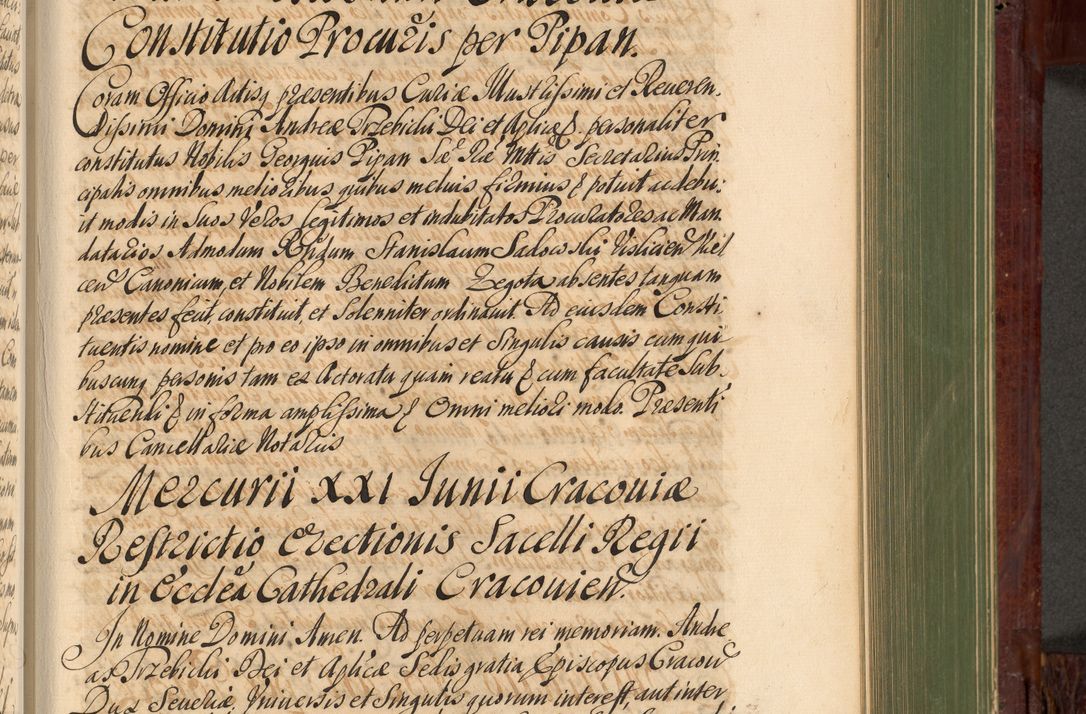 Constitutio Procuris per Pipan.
Coram Officio Actisq præsentibus Curiæ Illustrissimi et Reueren,
dissimi Domini Andreæ Trzebicki Dei et Aplicæ &. personaliter
constitutus Nobilis Georgius Pipan Sæ Ræ Mttis Secretarius Prin
cipalis omnibus melioribus quibus melius firmius & potuit ac debu,
it modis in Suos Veros legitimos et indubitatos Procuratores ac Man,
datarios Admodum Rndum Stanislaum Sadowski Vislicien Kiel
cen Canonicum, et Nobilem Benedictum Zegota absentes tanquam
præsentes fecit, constituit, et Solenniter ordinauit. Ad eiusdem Consti,
tuentis nomine et pro eo ipso in omnibus et Singulis causis cum qui
buscunq personis tam ex Actoratu quam reatu & cum facultate Sub,
stituendi & in forma amplissima & Omni meliori modo. Præsenti
bus Cancellariæ Notariis
Mercurii XXI Junii Cracouiæ
Restrictio Erectionis Sacelli Regii
in Eccłea Cathedrali Cracouien.
In Nomine Domini Amen. Ad perpetuam rei memoriam. Andre,
as Trzebicki Dei et Aplicæ Sedis gratia Episcopus Cracou
Dux Seueriæ, Vniuersis et Singulis quorum interest, aut inter